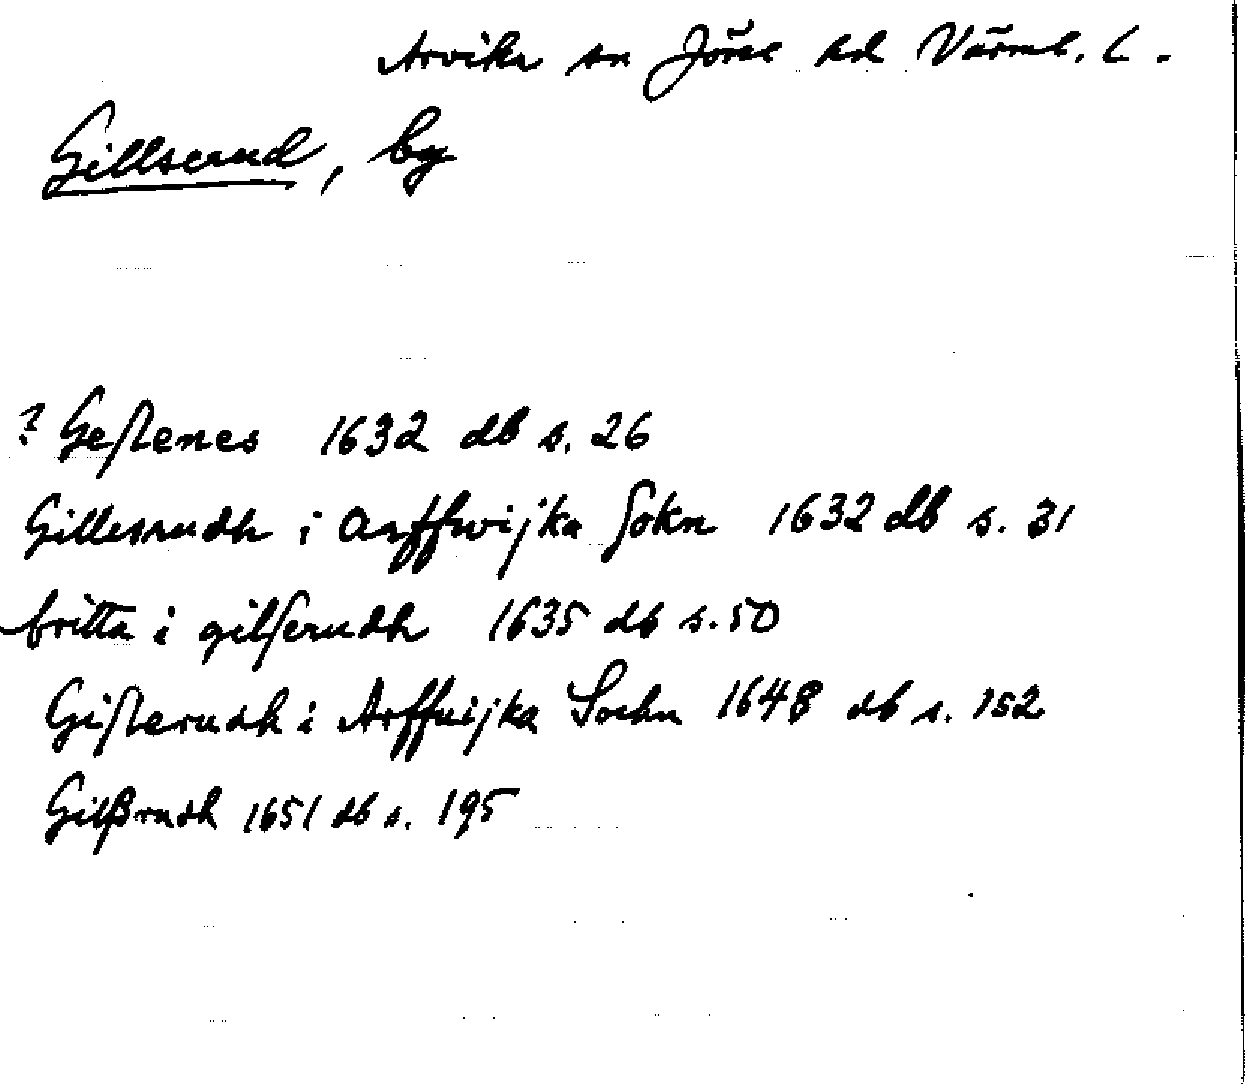 Arvika sn Jösse hd Värml. l.
Gillserud, by
? Geſtenes 1632 db s. 26
Gillesrudh i Arffwijka ſokn 1632 db s. 31
britta i gilſerudh 1635 db s. 50
Giſterudh i Arffuijka Sochn 1648 db s. 152
Gilßrudh 1651 db s. 195